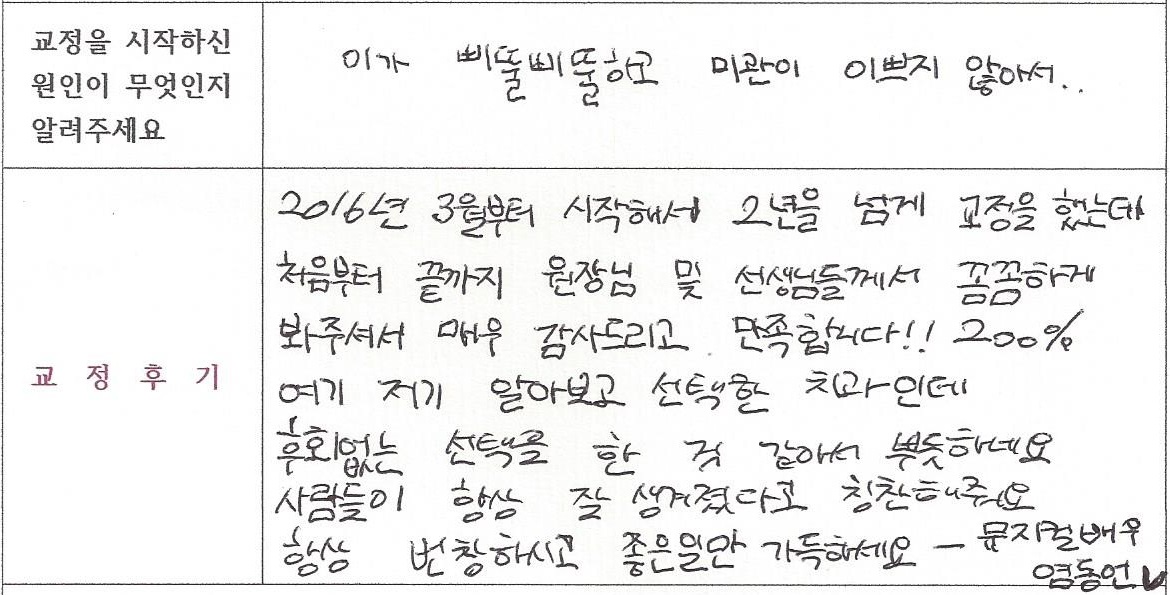 교정을 시작하신
원인이 무엇인지
알려주세요
이가 삐뚤삐뚤하고 미관이 이쁘지 않아서..
교정후기
2016년 3월부터 시작해서 2년을 넘게 교정을 했는데
처음부터 끝까지 원장님 및 선생님들께서 꼼꼼하게
봐주셔서 매우 감사드리고 만족합니다!! 200%
여기 저기 알아보고 선택한 치과인데
후회없는 선택을 한 것 같아서 뿌듯하네요
사람들이 항상 잘 생겨졌다고 칭찬해줘요
항상 번창하시고 좋은일만 가득하세요 - 뮤지컬배우
염동언